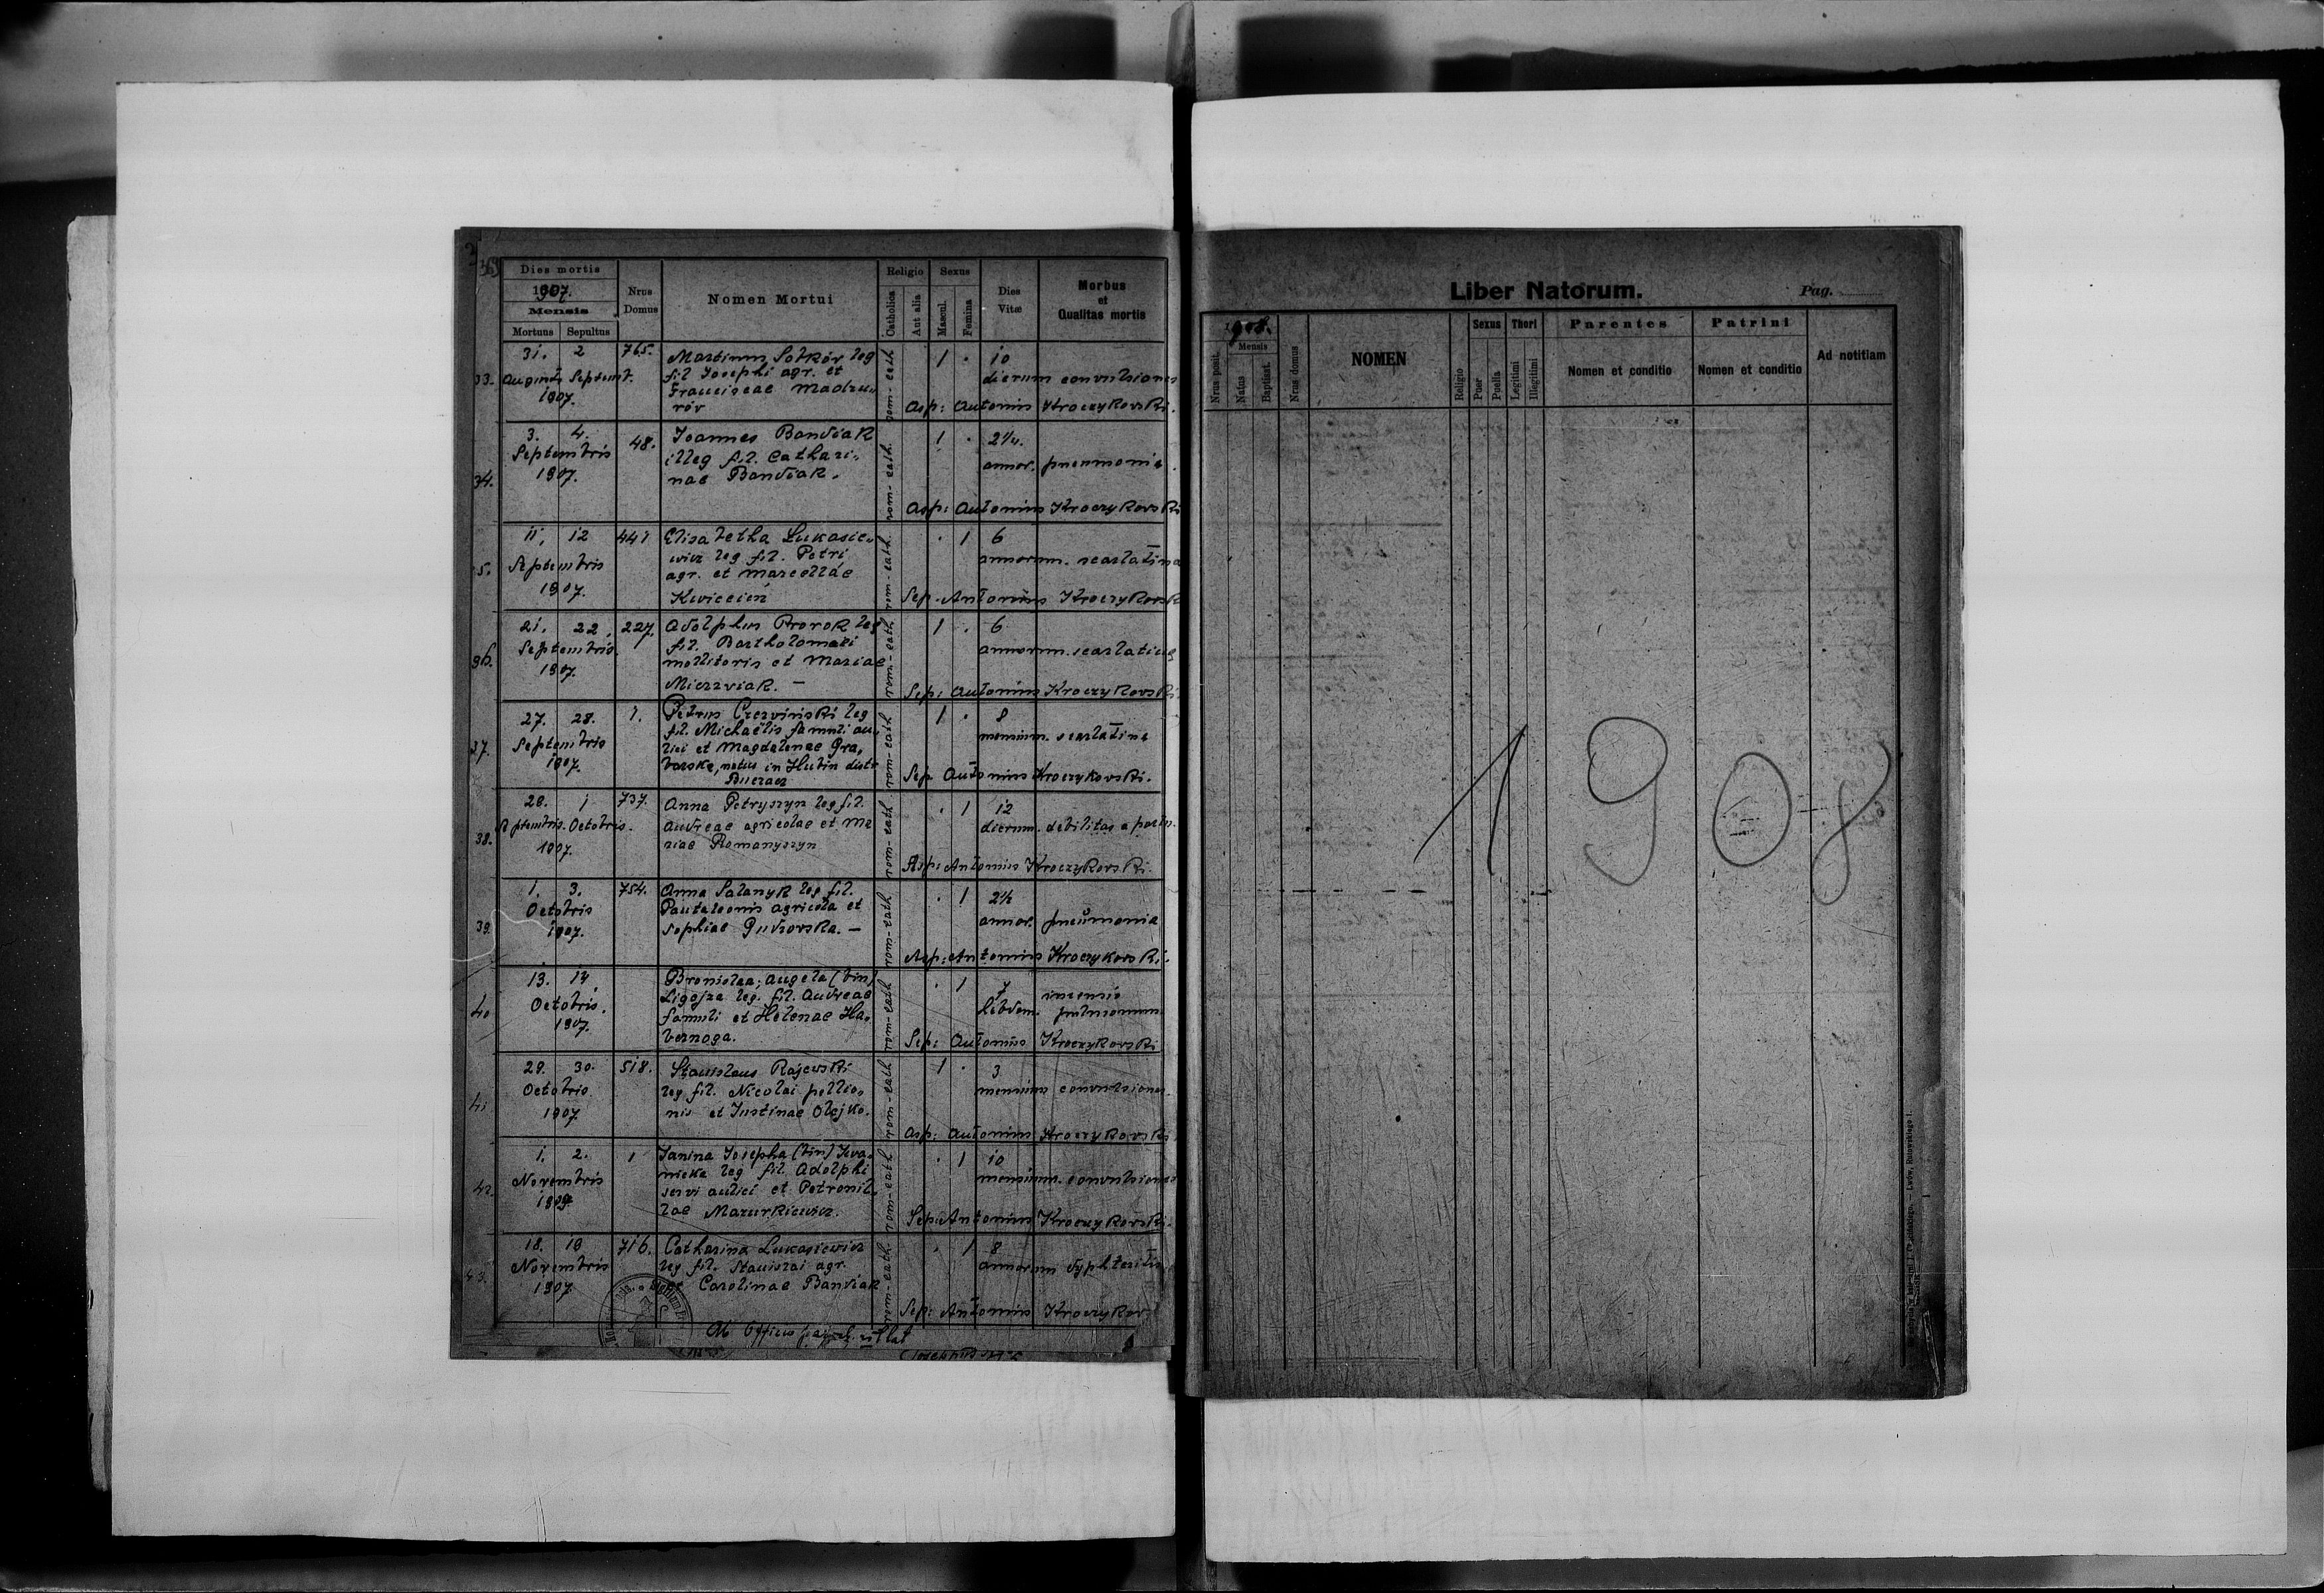 Dies mortis
1907.
Mensis
Mortuus Sepultus
Nrus Domus
Nomen Mortui
Religio
Catholica
Aut alia
Sexus
Mascul.
Femina
Dies Vitæ
Morbus et Qualitas mortis
33. 31. 2 765. Martinus leg 1 . 10
Augusti Septemb. fil Josephi agr. et dierum convulsiones
1907. Franciscae
rom-cath
Asp: Antonius Kroczykowski.
34. 3. 4. 48. Joannes Bandiak 1 . 2 1/4.
Septembris illeg fil. Cathari-
1907. nae Bandiak. annor. pneumonia
rom-cath.
Asp: Antonius Kroczykowski
11. 12 441 Elisabetha Lukasie- . 1 6
wicz leg fil. Petri
Septembris agr. et Marcellae annorum. scarlatina
1907. Kwiecień
rom-cath.
Sep. Antonius Kroczykowsk
36. 21. 22. 227. Adolphus Prorok leg 1 . 6
Septembris. fil. Bartholomaei annorum. scarlatina
1907. mollitoris et Mariae
Mierzwiak. —
rom-cath
Sep: Antonius Kroczykowski
37. 27. 28. 1. Petrus Czerwiński leg 1 . 8
Septembris fil. Michaëlis famuli au- mensium. scarlatina
1907. lici et Magdalenae Gra-
barska, natus in Hubin distr
Buczacz
rom-cath
Sep Antonius Kroczykowski.
38. 28. 1 737. Anna Petryszyn leg fil. . 1 12
Septembris. Octobris. Andreae agricolae et Ma dierum. debilitas a partu.
1907. riae Romanyszyn
rom-cath
Asp: Antonius Kroczykowski.
39. 1. 3. 754. Anna Salanyk leg fil. . 1 2 1/2
Octobris Pantaleonis agricola et annor. pneumonia
1907. Sophiae —
rom-cath
Asp: Antonius Kroczykowski.
40 13. 14 Bronislaa, Angela (bin) . 1 7
Octobris. Ligojza leg. fil. Andreae hebdom. pulmonum
1907. famuli et Helenae Ha-
bernoga.
rom-cath
Sep: Antonius Kroczykowski
41 29. 30. 518. Stanislaus Rajewski 1 . 3
Octobris leg fil. Nicolai pellio- mensium convulsiones.
1907 nis et Justinae Olejko.
rom-cath
Asp: Antonius Kroczykowski
42. 1. 2. 1 Janina Josepha (bin) Iwa- . 1 10
Novembris nicka leg fil. Adolphi mensium. convulsiones
servi aulici et Petronil-
lae Mazurkiewicz.
rom-cath
Sep: Antonius Kroczykowski.
43. 18. 19 716. Catharina Lukasiewicz . 1 8
Novembris leg fil. Stanislai agr. annorum dyphteritis
1907. et Carolinae Bandiak
rom-cath.
Sep: Antonius Kroczykow
Ab Officio
Liber Natorum.
Pag.
1908.
Mensis
Nrus posit.
Natus
Baptisat.
Nrus domus
NOMEN
Religio
Sexus
Puer
Puella
Thori
Legitimi
Illegitimi
Parentes
Nomen et conditio
Patrini
Nomen et conditio
Ad notitiam
1908